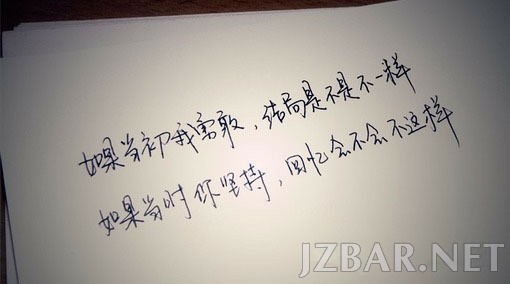 如果当初我勇敢，结局是不是不一样
如果当时你坚持，回忆会不会不这样
JZBAR.NET